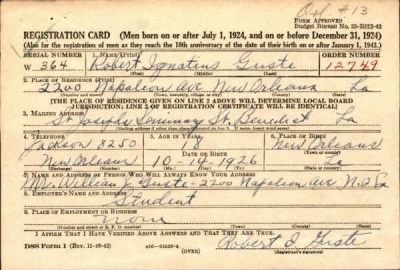 Bd #13
Form Approved
Budget Bureau No. 33-R012-42
REGISTRATION CARD (Men born on or after July 1, 1924, and on or before December 31, 1924)
(Also for the registration of men as they reach the 18th anniversary of the date of their birth on or after January 1, 1943.)
SERIAL NUMBER 1. NAME (Print) ORDER NUMBER
W 364 Robert Ignatius Guste 12749
(First) (Middle) (Last)
2. PLACE OF RESIDENCE (Print)
2200 Napoleon Ave New Orleans La
[THE PLACE OF RESIDENCE GIVEN ON LINE 2 ABOVE WILL DETERMINE LOCAL BOARD
JURISDICTION; LINE 2 OF REGISTRATION CERTIFICATE WILL BE IDENTICAL]
3. MAILING ADDRESS
St. Joseph Seminary St. Benedict La
4. TELEPHONE 5. AGE IN YEARS 6. PLACE OF BIRTH
Jackson 3250 18 New Orleans
DATE OF BIRTH
New Orleans 10-14-1926 La
7. NAME AND ADDRESS OF PERSON WHO WILL ALWAYS KNOW YOUR ADDRESS
Mr. William J. Guste-2200 Napoleon Ave N.O. La
8. EMPLOYER'S NAME AND ADDRESS
Student
9. PLACE OF EMPLOYMENT OR BUSINESS
none
(Number and street or R. F. D. number) (Town) (County) (State)
I AFFIRM THAT I HAVE VERIFIED ABOVE ANSWERS AND THAT THEY ARE TRUE.
DSS Form 1 (Rev. 11-16-42) (OVER) Robert I. Guste